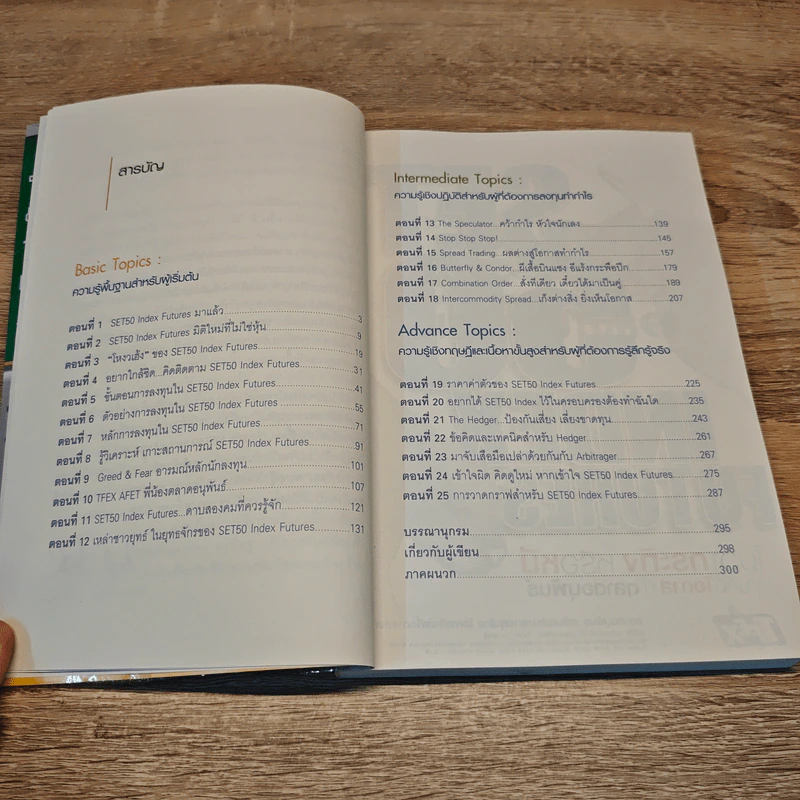 สารบัญ
Basic Topics :
ความรู้พื้นฐานสำหรับผู้เริ่มต้น
ตอนที่ 1 SET50 Index Futures มาแล้ว 3
ตอนที่ 2 SET50 Index Futures มิติใหม่ที่ไม่ใช่หุ้น 9
ตอนที่ 3 "โหงวเฮ้ง" ของ SET50 Index Futures 19
ตอนที่ 4 อยากใกล้ชิด...คิดติดตาม SET50 Index Futures 31
ตอนที่ 5 ขั้นตอนการลงทุนใน SET50 Index Futures 41
ตอนที่ 6 ตัวอย่างการลงทุนใน SET50 Index Futures 55
ตอนที่ 7 หลักการลงทุนใน SET50 Index Futures 71
ตอนที่ 8 รู้วิเคราะห์ เกาะสถานการณ์ SET50 Index Futures 91
ตอนที่ 9 Greed & Fear อารมณ์หลักนักลงทุน 101
ตอนที่ 10 TFEX AFET พี่น้องตลาดอนุพันธ์ 107
ตอนที่ 11 SET50 Index Futures...ดาบสองคมที่ควรรู้จัก 121
ตอนที่ 12 เหล่าชาวยุทธ์ ในยุทธจักรของ SET50 Index Futures 131
Intermediate Topics :
ความรู้เชิงปฏิบัติสำหรับผู้ที่ต้องการลงทุนทำกำไร
ตอนที่ 13 The Speculator...คว้ากำไร หัวใจนักเลง 139
ตอนที่ 14 Stop Stop Stop! 145
ตอนที่ 15 Spread Trading...ผลต่างสู่โอกาสทำกำไร 157
ตอนที่ 16 Butterfly & Condor...ผีเสื้อบินแซง อีแร้งกระพือปีก 179
ตอนที่ 17 Combination Order...สั่งทีเดียว เดี๋ยวได้มาเป็นคู่ 189
ตอนที่ 18 Intercommodity Spread...เก็งต่างสิ่ง ยิ่งเห็นโอกาส 207
Advance Topics :
ความรู้เชิงทฤษฎีและเนื้อหาขั้นสูงสำหรับผู้ที่ต้องการรู้ลึกรู้จริง
ตอนที่ 19 ราคาค่าตัวของ SET50 Index Futures 225
ตอนที่ 20 อยากได้ SET50 Index ไว้ในครอบครองต้องทำฉันใด 235
ตอนที่ 21 The Hedger...ป้องกันเสี่ยง เลี่ยงขาดทุน 243
ตอนที่ 22 ข้อคิดและเทคนิคสำหรับ Hedger 261
ตอนที่ 23 มาจับเสือมือเปล่าด้วยกันกับ Arbitrager 267
ตอนที่ 24 เข้าใจผิด คิดดูใหม่ หากเข้าใจ SET50 Index Futures 275
ตอนที่ 25 การวาดกราฟสำหรับ SET50 Index Futures 287
บรรณานุกรม 295
เกี่ยวกับผู้เขียน 298
ภาคผนวก 300